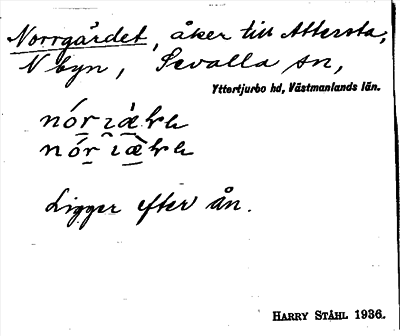 Norrgärdet, åker till Attersta,
N byn, Sevalla sn,
Yttertjurbo hd, Västmanlands län.
Ligger efter ån.
HARRY STÅHL 1936.